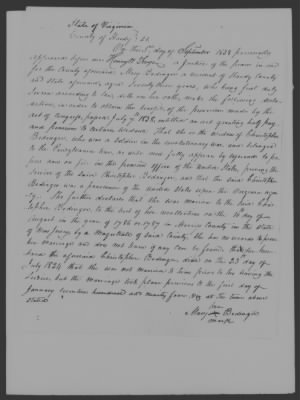 State of Virginia
County of Hardy SS.
On this 3d day of September 1838 personally
appeared before me a Justice of the peace in and
for the County aforesaid Mary Bodinger a resident of Hardy County
and State aforesaid, aged Seventy three years, who being first duly
Sworn according to law, doth on her oath, make the following decla-
ration, in order to obtain the benefit of the provision made by the
act of Congress, passed July 7th 1838, entitled an act granting half pay
and pensions to certain widows. That she is the widow of Christopher
Bodinger, who was a Soldier in the revolutionary war and belonged
to the Pensylvania line, as will more fully appear by reference to pa-
pers now on file in the pension office of the United States, proving the
Service of the Said Christopher Bodinger, and that the Said Christopher
Bodinger was a pensioner of the United States upon the Virginia agen-
cy. She further declares that she was married to the Said Chris-
topher Bodinger, to the best of her recollection on the 10 day of
August in the year of 1786 or 1787 in Morris County in the State
of New Jersey by a Magistrate of Said County. She has no record to prove
her marriage and does not know if any can be found. That her hus-
band the aforesaid Christopher Bodinger died on the 23d day of
July 1824 that she was not married to him prior to his leaving the
Service, but the marriage took place previous to the first day of
January Seventeen hundred and ninety four viz at the time above
stated
her
Mary Bodinger
mark